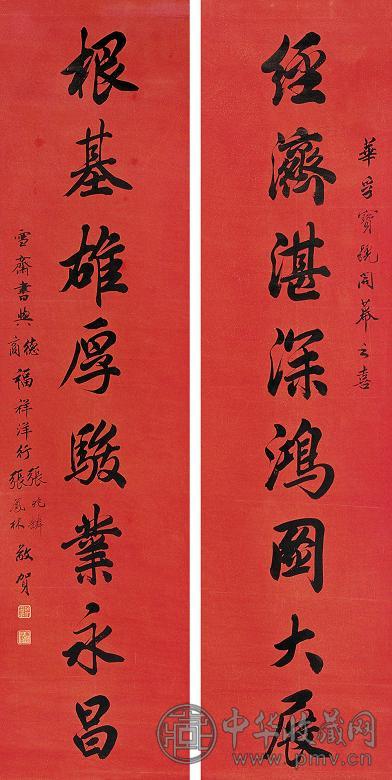 華孚寶號開幕之喜
經濟湛深鴻圖大展
根基雄厚駿業永昌
雪齋書與德商福祥洋行張鳳林敬賀
中华收藏网
www.pmv.cn